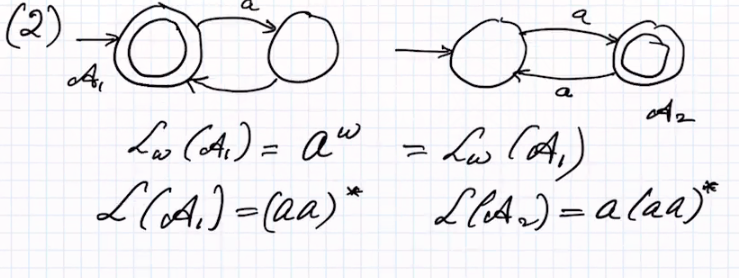 (2) a a
𝒜₁ a 𝒜₂
ℒω(𝒜₁) = aω = ℒω(𝒜₁)
ℒ(𝒜₁) = (aa)* ℒ(𝒜₂) = a(aa)*